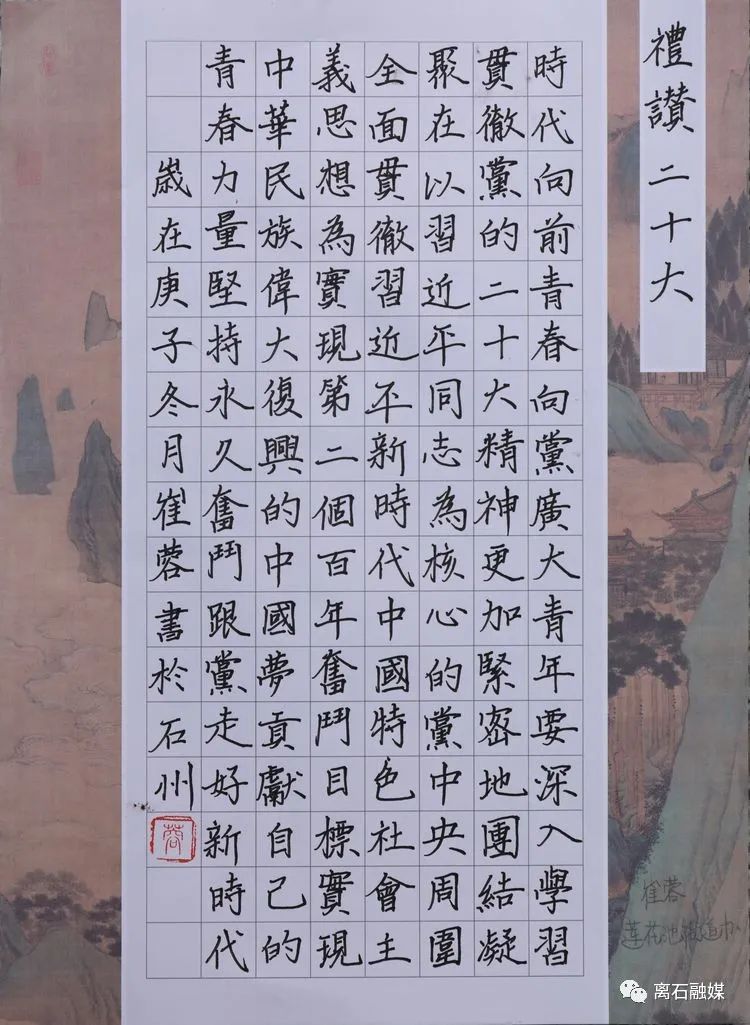 禮讚二十大
時代向前青春向黨廣大青年要深入學習
貫徹黨的二十大精神更加緊密地團結凝
聚在以習近平同志為核心的黨中央周圍
全面貫徹習近平新時代中國特色社會主
義思想為實現第二個百年奮鬥目標實現
中華民族偉大復興的中國夢貢獻自己的
青春力量堅持永久奮鬥跟黨走好新時代
歲在庚子冬月崔蓉書於石州
蓉
崔蓉
蓮花池街道
离石融媒